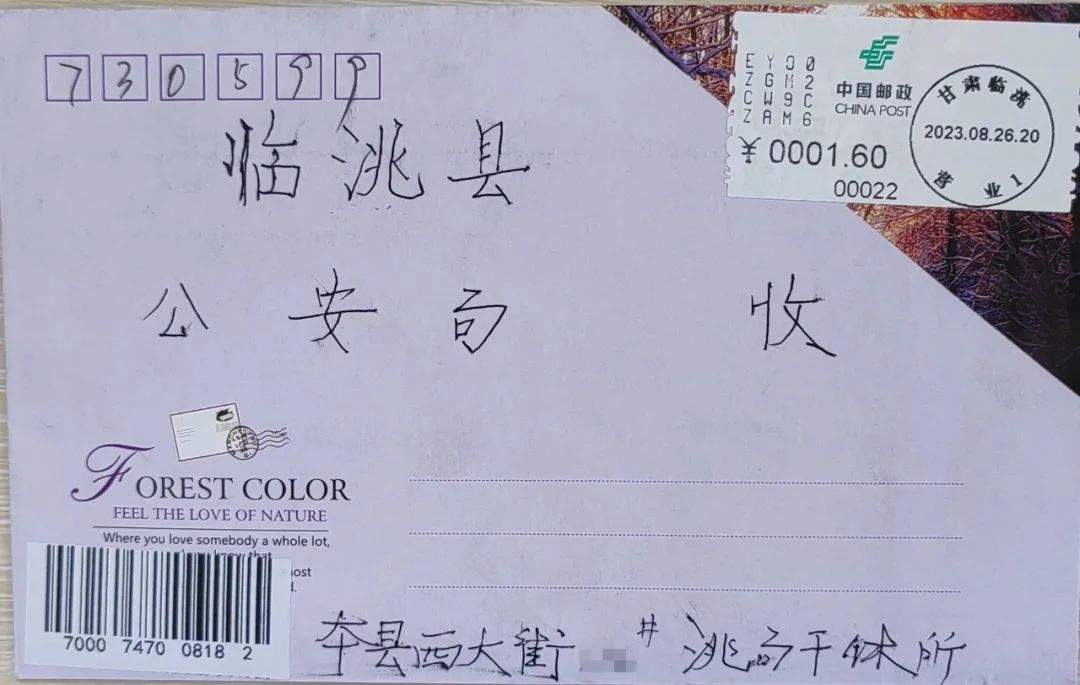 730599
EYO0
ZGM2
CW9C
ZAM6
中国邮政
CHINA POST
甘肃临洮
2023.08.26.20
营业1
¥0001.60
00022
临洮县
公安局 收
FOREST COLOR
FEEL THE LOVE OF NATURE
Where you love somebody a whole lot,
know that
7000 7470 0818 2
本县西大街 # 洮 干休所